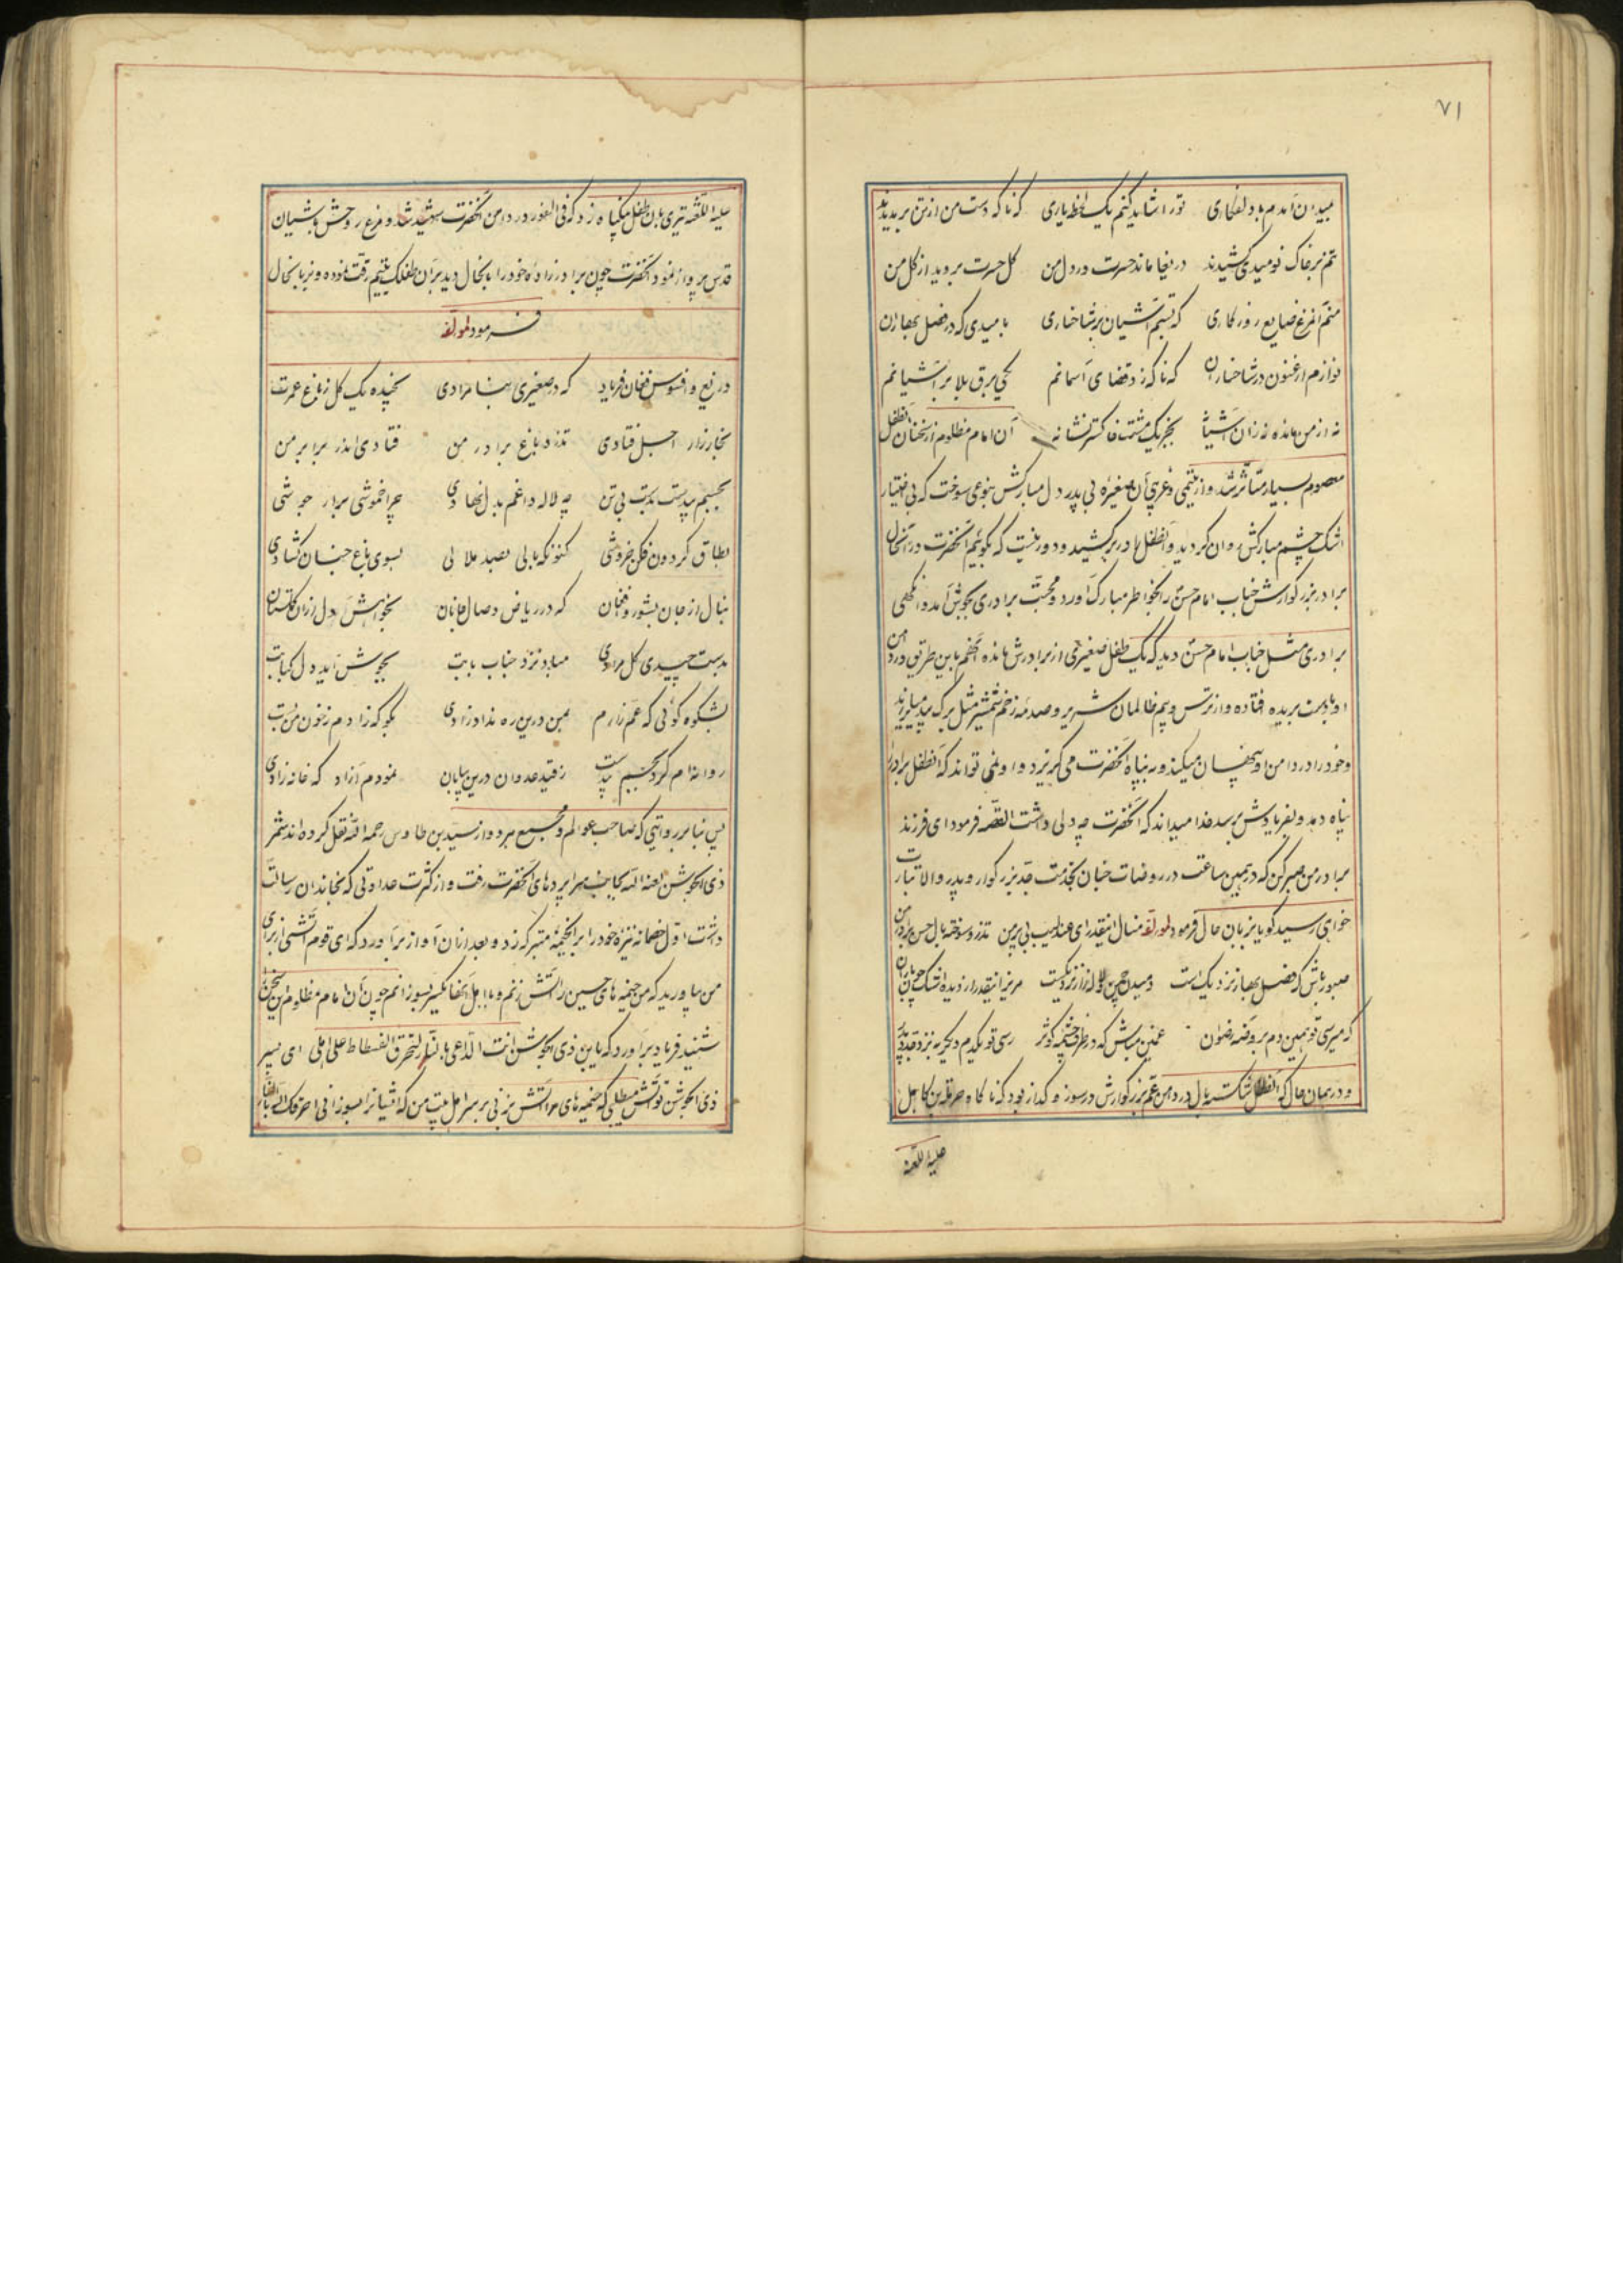 ۷۱
بمیدان آمدم با دلفکاری تو را شاید کنم یک لحظه یاری که ناکه دست من از تن بریدند
تنم بر خاک نومیدی کشیدند دریغا ماند حسرت در دل من کل حسرت بروید از کل من
منم آنمرغ ضایع روزکاری که بستم آشیان بر شاخساری بامیدی که در فصل بهاران
نوازم ارغنون در شاخساران که ناکه زد قضای آسمانم یکی برق بلا بر آشیانم
نه از من مانده نه زان آشیانه بجز یک مشت خاکستر نشانه آن امام مظلوم از سخنان آنطفل
معصوم بسیار متأثر شد و از یتیمی و غریبی آن صغیره بی پدر دل مبارکش بنوعی سوخت که بی اختیار
اشک چشم مبارکش روان کردید و آنطفل را در بر کشید و دور نیست که بکوئیم آنحضرت در آنحال
برادر بزرکوارش جناب امام حسن را بخواطر مبارک آورد و محبت برادری بجوش آمد و انکهی
برادری مثل جناب امام حسن دید که یک طفل صغیری از برادرش مانده آنهم باین طریق در دامن
او با دست بریده افتاده و از ترس و بیم ظالمان شریر و صدمه زخم شمشیر مثل برک بید میلرزید
و خود را در دامن او پنهان میکند و به پناه آنحضرت می کریزد و او نمی تواند که آنطفل برادر را
پناه دهد و بفریادش برسد خدا میداند که آنحضرت چه دلی داشت القصه فرمود ای فرزند
برادر من صبر کن که در همین ساعت در روضات جنان بخدمت جد بزرکوار و پدر والاتبارت
خواهی رسید کویا بزبان حال فرمود لمولفه منال اینقدر ای عندلیب بی پر من تذرو سوخته بال حسن برادر من
صبور باش که فصل بهار نزدیک است دمیدن چمن لاله زار نزدیکست مریز اینقدر از دیده اشک چو باران
که میرسی تو همین دم بروضه رضوان غمین مباش که در طرف چشمه کوثر رسی تو یکدم دیکر به نزد جد و پدر
و در همان حال که آنطفل شکسته بال در دامن عم بزرکوارش در سوز و کداز بود که ناکاه حرمله بن کاهل
علیه اللعنه
علیه اللعنه تیری بان طفل بیکناه زد که فی الفور در دامن آنحضرت شهید شد و مرغ روحش باشیان
قدس پرواز نمود آنحضرت چون برادر زاده خود را بانحال دید بر آن طفلک یتیم رقت نموده و بزبانحال
فرمود لمولفه
دریغ و افسوس فغان و فریاد که در صغیری بنامرادی نچیده یک کل ز باغ عمرت
بخارزار اجل فتادی تذرو باغ برادر من فتادی اندر برابر من
بجسم بیدست بدست بی تن چه لاله داغم بدل نهادی چرا خموشی برار جوشی
بطاق کردون فکن خروشی کنونکه بالی بصد ملالی بسوی باغ جنان کشادی
بنال از جان بشور و افغان که در ریاض وصال جانان بخواهش دل از آن کلستان
بدست چیدی کل مرادی مبادا نزد جناب بابت بجوش آید دل کبابت
بشکوه کوئی که عم زارم بمن درین ره نداد زادی بکو که زادم ز خون من بست
روانه ام کرد بجسم بیدست ز قید عدوان درین بیابان نمودم آزاد که خانه زادی
پس بنا بر روایتی که صاحب عوالم و جمیع هر دو از سید بن طاوس رحمه الله نقل کرده اند شمر
ذی الجوشن لعنه الله بجانب سراپرده های آنحضرت رفت و از کثرت عداوتی که بخاندان رسالت
داشت اول خصمانه نیزه خود را بر آنخیمه متبرکه زد و بعد ازان آواز برآورد که ای قوم آتشی از برای
من بیاورید که من خیمه های حسین را آتش زنم و با اهل آنها یکسر بسوزانم چون آن امام مظلوم این سخن را
شنید فریاد برآورد که یابن ذی الجوشن انت الداعی بالنار لتحرق الفسطاط علی اهلی ای پسر
ذی الجوشن تو آتش می طلبی که خیمه های مرا آتش بزنی بر سر اهل بیت من که ایشانرا بسوزانی احرقک الله بالنار